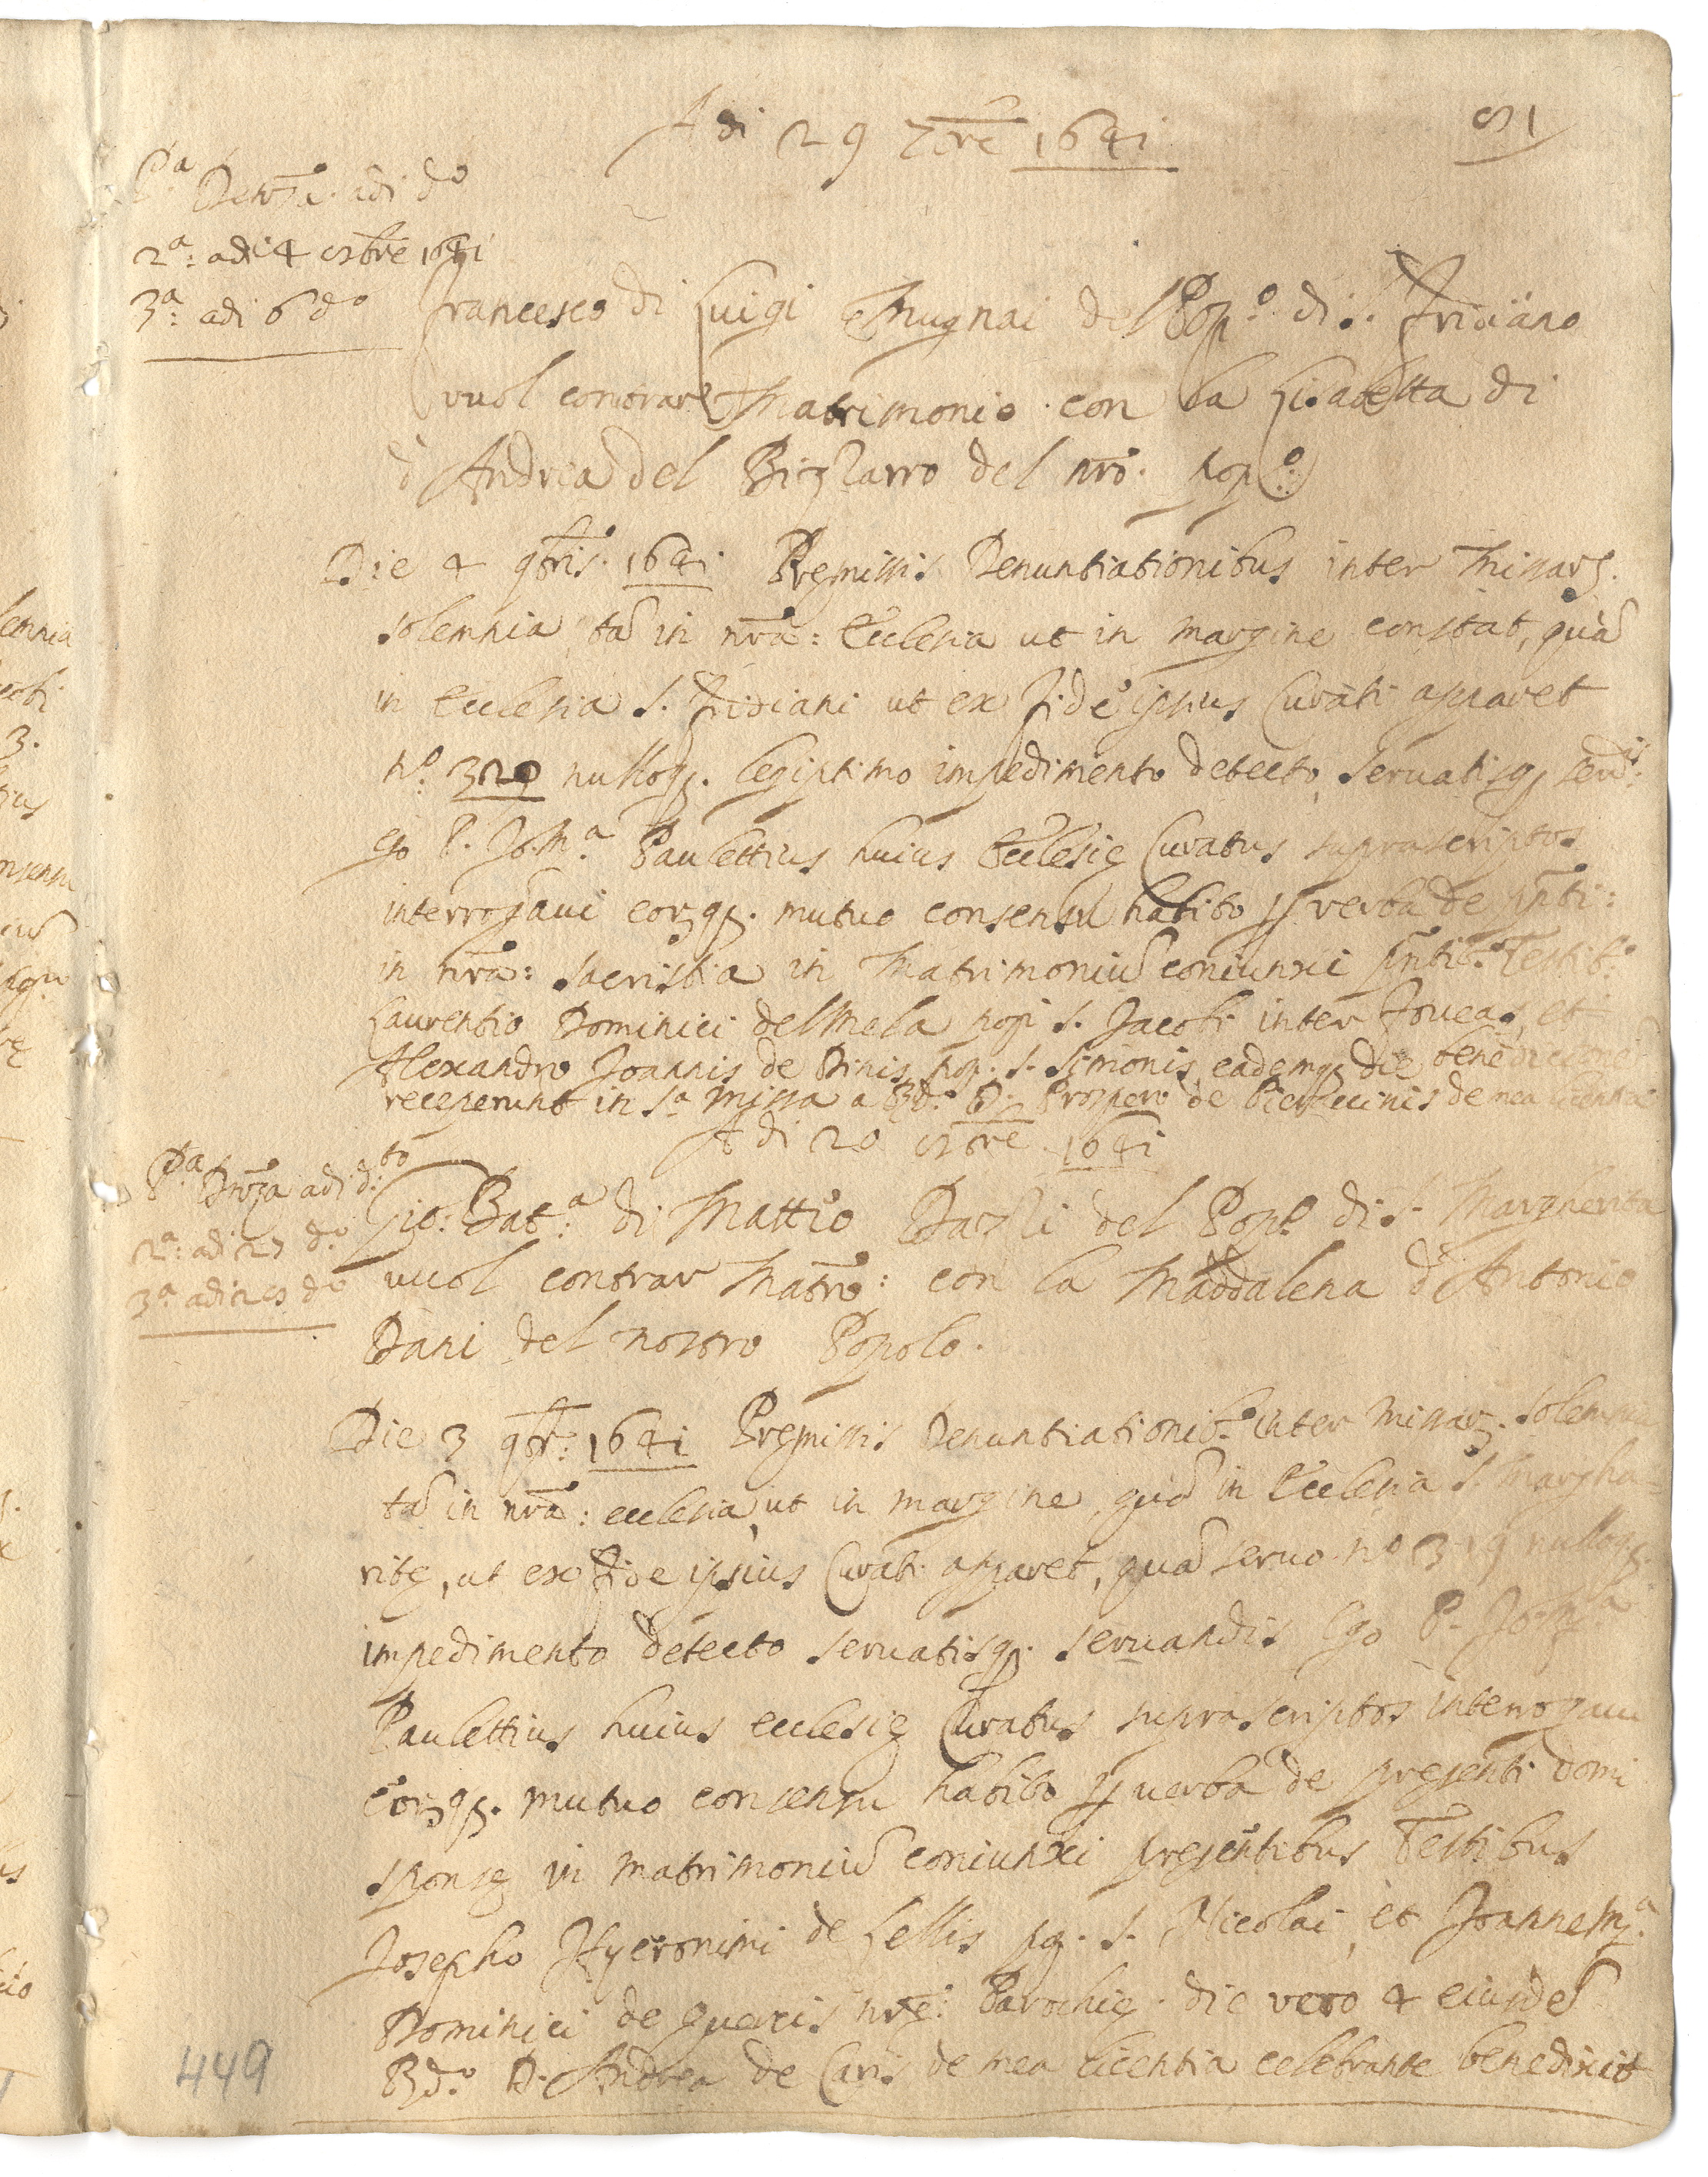 A di 29 7bre 1641
51
P.a Denũza adi do
2a: adi 4 8bre 1641
3a: adi 6 do
Francesco di Luigi Mugnai del Popo. di S. Fridiano
vuol contrare Matrimonio con la Lisabetta di
d'Andrea del Bizzarro del nro. popo:
Die 4 9bris. 1641 Premissis Denuntiationibus inter Missarũ.
solemnia tã in nra: Ecclesia ut in margine constat, quã
in Ecclesia S. Fridiani ut ex Fide ipsius Curati apparet
No. 320 nulloq. legiptimo impedimento detecto, servatisq servdis:
ego P. Jo. Ma. Paulettius huius Ecclesie Curatus suprascriptos
interrogavi eorũq. mutuo consensu habito p verba de pnti:
in nra: sacristia in Matrimoniũ coniunxi pntib. Testib.
Laurentio Dominici del Mela popi S. Jacobi inter Foveas, et
Alexandro Joannis de Dinis pop. S. Simonis, eademq die benedictione
receperunt in sa missa a Rdo. D. Prospero de Pierleccinis de mea licentia
A di 20 8bre 1641
Pa Denza adi d:to
2a: adi 27 do
3a adi 28 do
Gio: Bat:a di Mattio Dazzi del Popo. di S. Margherita
vuol contrar Matro: con la Maddalena d'Antonio
Dani del nostro Popolo.
Die 3 9br: 1641 Premissis Denuntiationib. inter missarũ. solemnia
tã in nra: ecclesia, ut in margine, quã in Ecclesia S. Margha=
rite, ut ex Fide ipsius Curati apparet, quã servo no 319 nulloq.
impedimento detecto servatisq. servandis Ego P. Jo. Ma
Paulettius huius ecclesie Curatus suprascriptos interrogavi
eorũq. mutuo consensu habito p verba de presenti domi
sponse in matrimoniũ coniunxi presentibus Testibus
Josepho Hyeronimi de Lellis pp. S. Nicolai, et Joanne Ma.
Dominici de Quercis nre: Parochie. die vero 4 eiusdẽ
Rdo. D. Andrea de Cari de mea licentia celebrante benedixit
449